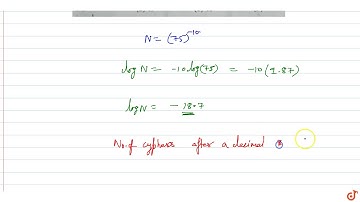 N = (75)^-10
log N = -10 log(75) = -10 (1.87)
log N = - 18.7
No. of cyphers after a decimal